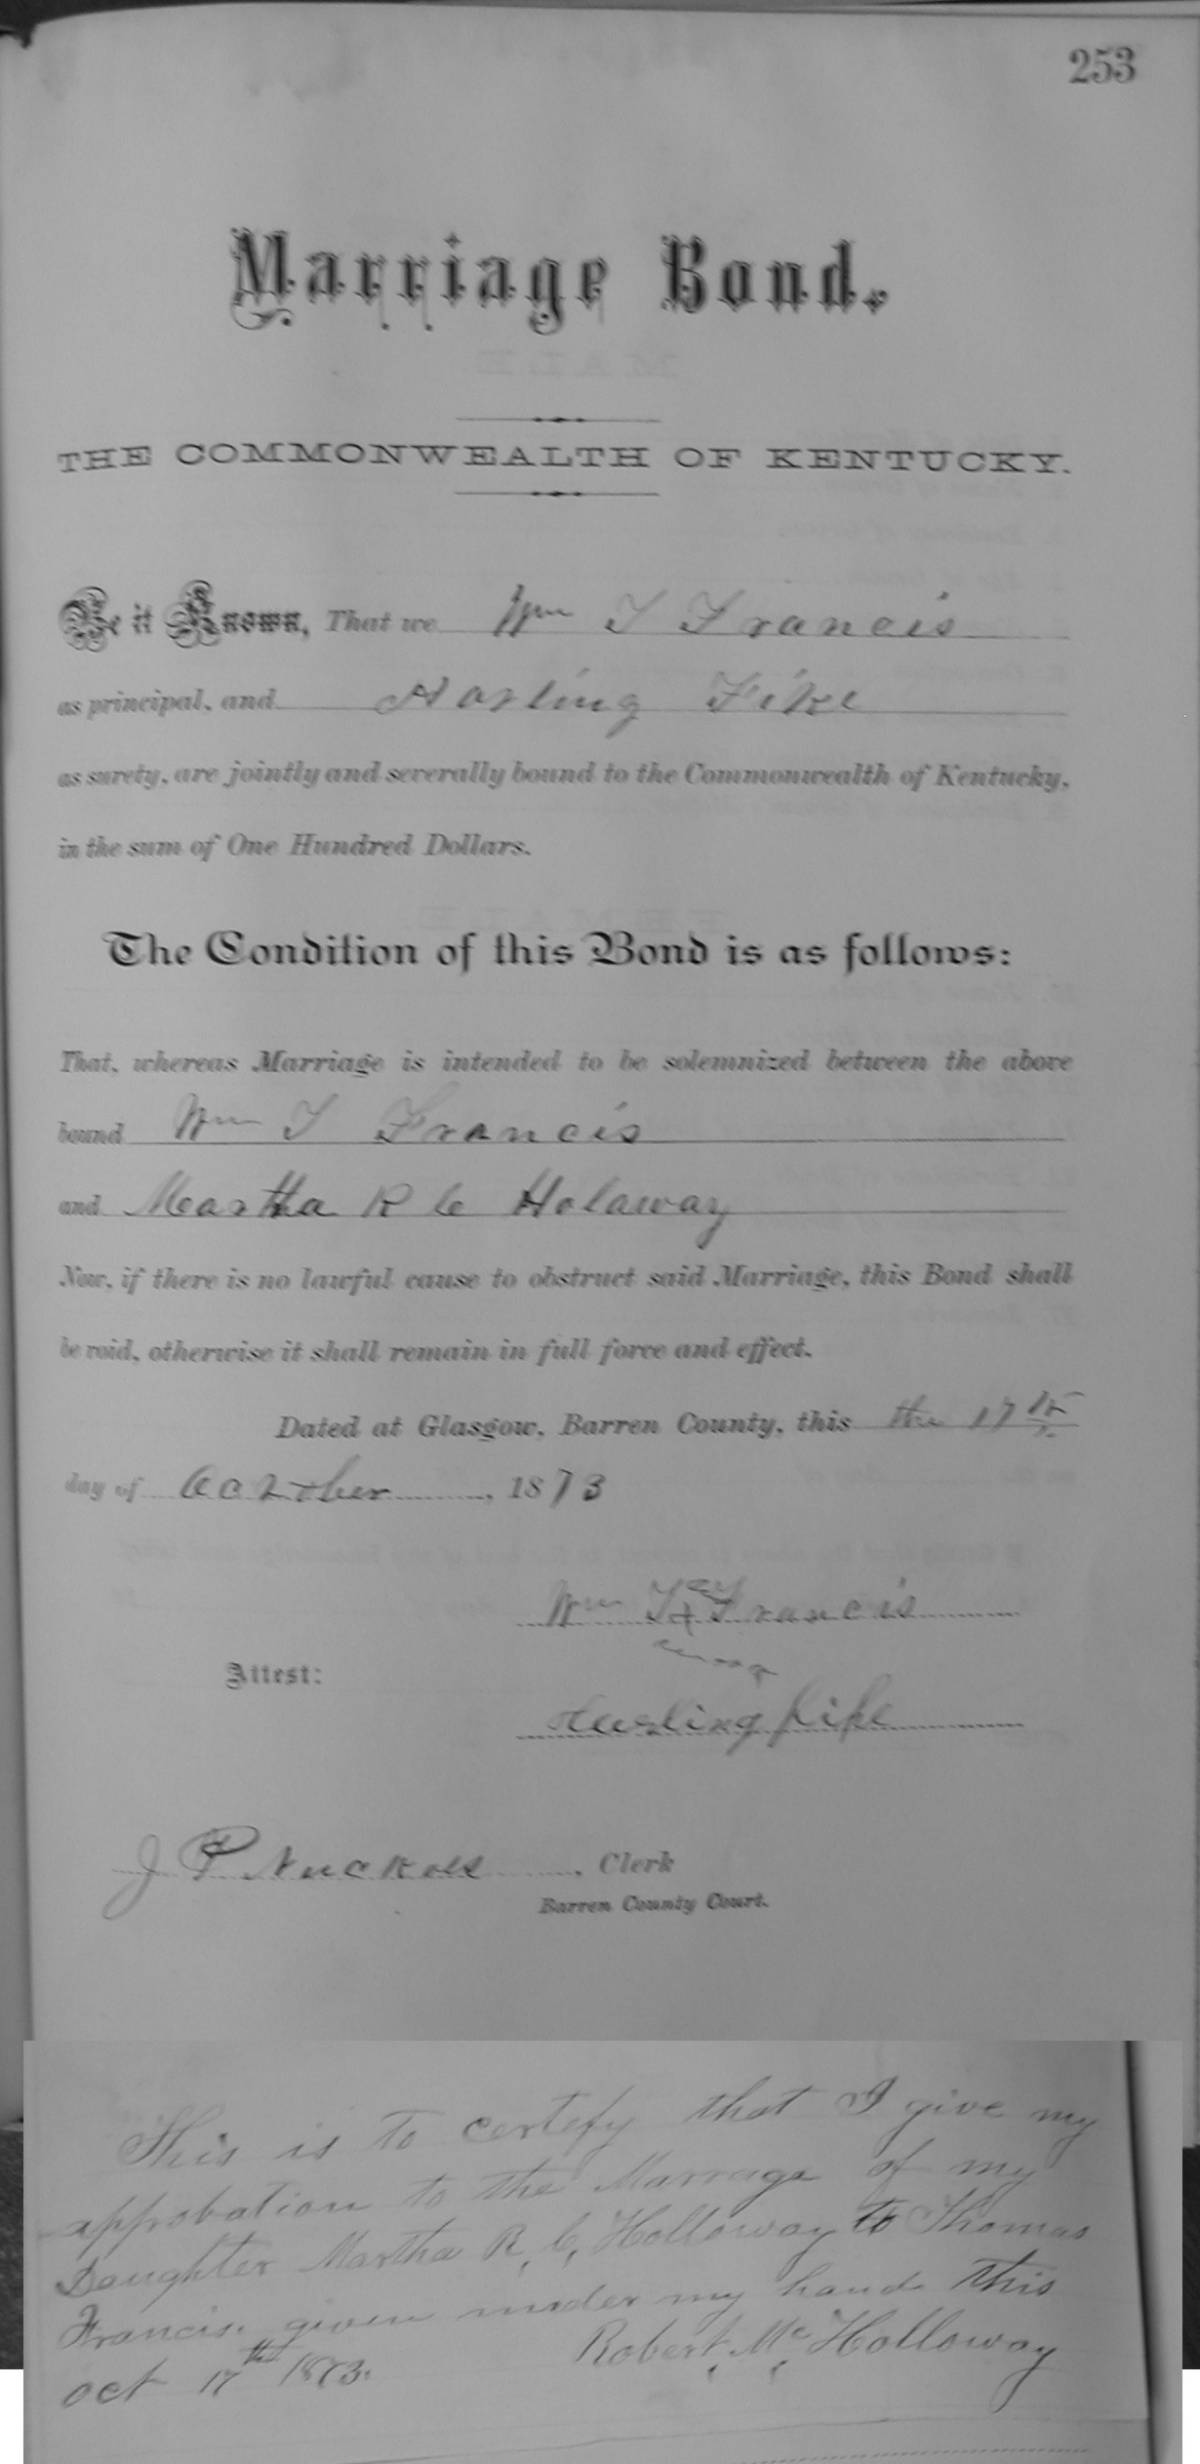 253
Marriage Bond.
THE COMMONWEALTH OF KENTUCKY.
Be it Known, That we Wm T Francis
as principal, and Harling Fike
as surety, are jointly and severally bound to the Commonwealth of Kentucky,
in the sum of One Hundred Dollars.
The Condition of this Bond is as follows:
That, whereas Marriage is intended to be solemnized between the above
bound Wm T Francis
and Martha R C Holaway
Now, if there is no lawful cause to obstruct said Marriage, this Bond shall
be void, otherwise it shall remain in full force and effect.
Dated at Glasgow, Barren County, this the 17th
day of October, 1873
Wm T Francis
Attest:
Harling Fike
J P Nuckols, Clerk
Barren County Court.
This is to certefy that I give my
approbation to the Marrage of my
Daughter Martha R. C. Holloway to Thomas
Francis. given under my hand this
oct 17th 1873. Robert. Mc Holloway